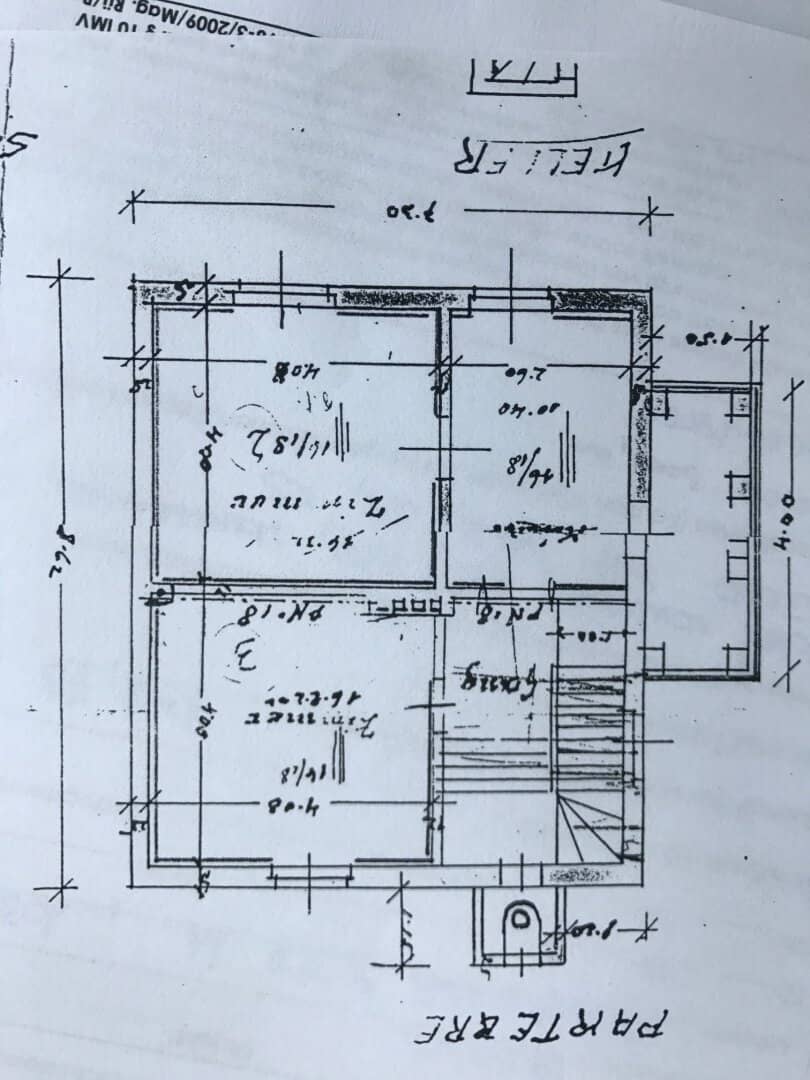 PARTERRE
25
4.08
14/18
Zimmer
4.00
Gang
3
1.00
P.N. 18
P.N. 18
4.00
16.32
Zimmer
16/18
14/18
2
4.00
10.40
2.60
4.08
1.50
25
8.62
7.20
KELLER
3/2009/Mag. Rü/P
§ 10 IMV